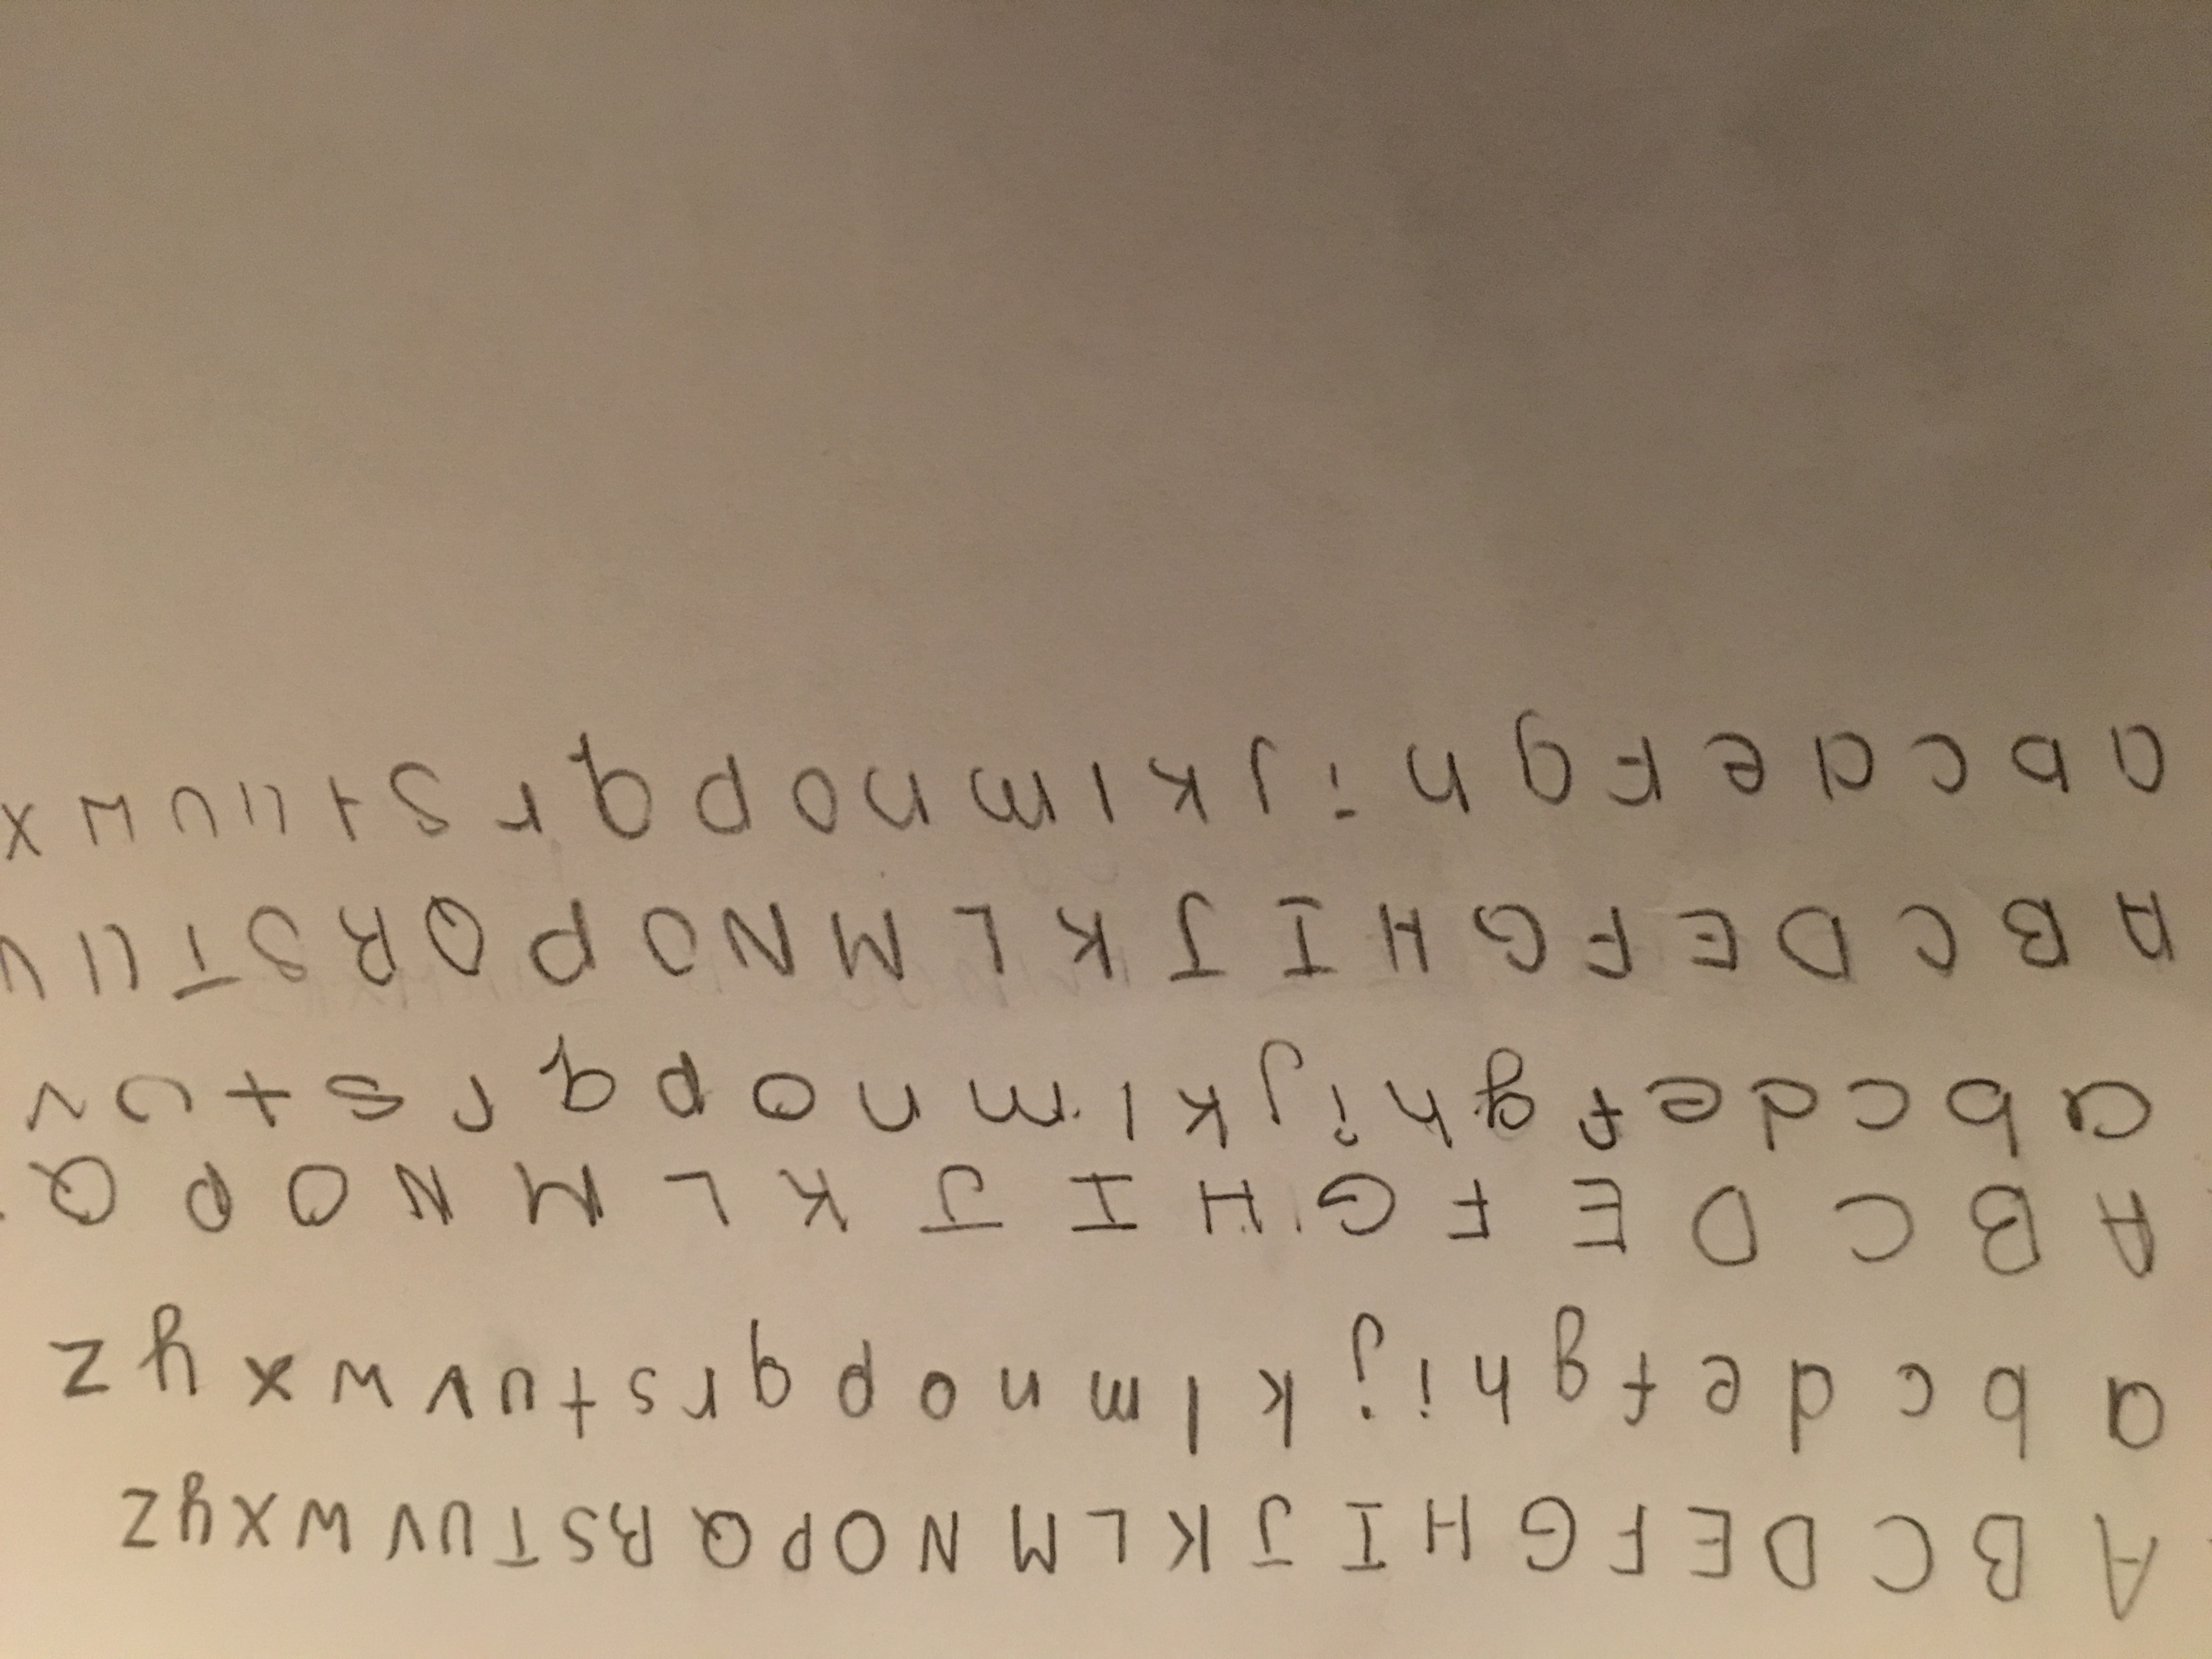 A B C D E F G H I J K L M N O P Q R S T U V W X y Z
a b c d e f g h i j k l m n o p q r s t u v w x y z
A B C D E F G H I J K L M N O P Q
a b c d e f g h i j k l m n o p q r s t u v
A B C D E F G H I J K L M N O P Q R S T U V
a b c d e f g h i j k l m n o p q r s t u v w x